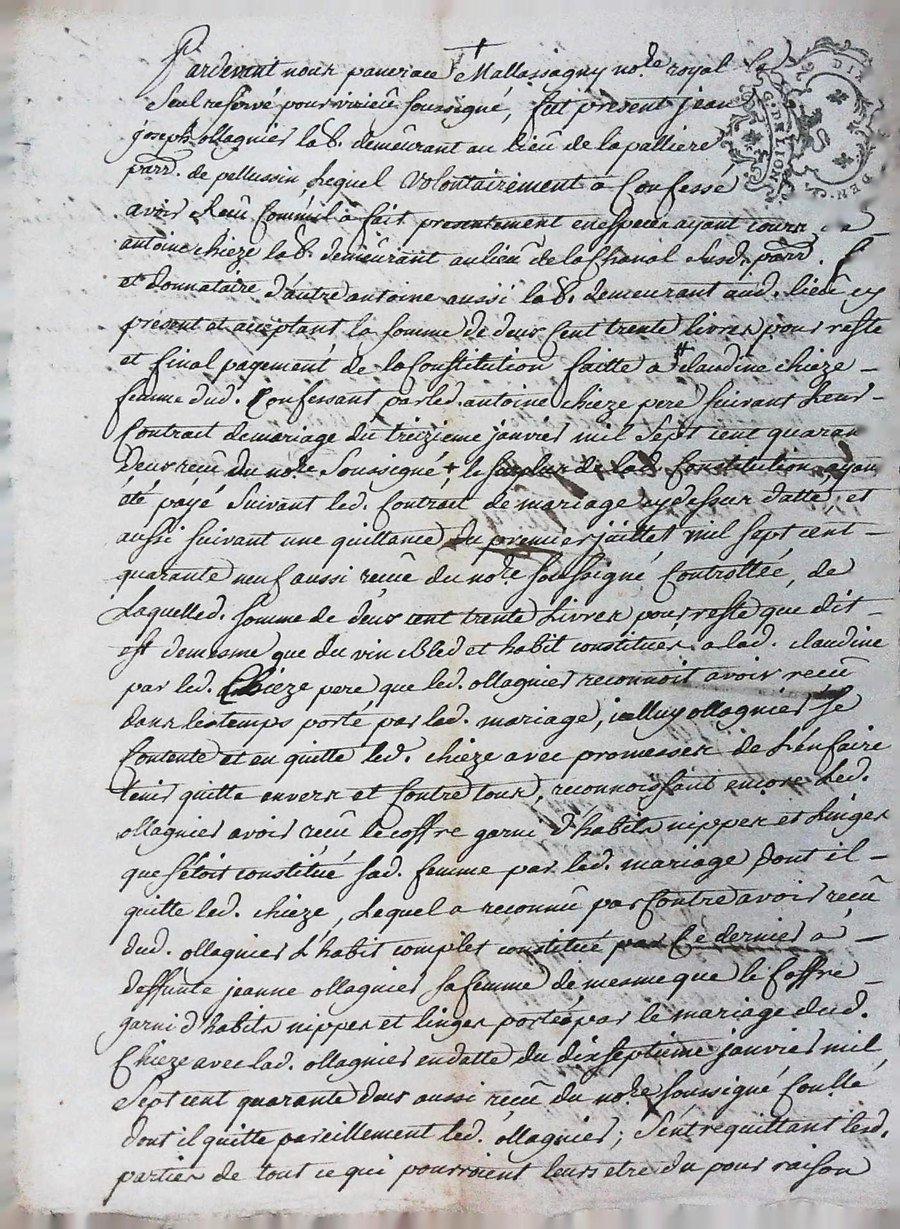 Pardevant nous pancrace Mallassagny no.re royal
seul reservé pour virieu soussigné, fut present jean
joseph ollagnier lab. demeurant au lieu de la palliere
parr. de pellussin Lequel volontairement a Confessé
avoir Receu Comm'il a fait presentement en especes ayant cours, de
antoine chieze lab. demeurant au lieu de la Chanal susd. parr.
et donnataire d'autre antoine aussi lab. demeurant aud. lieu cy
present et acceptant la somme de deux cent trente livres pour reste
et final pagement de la Constitution faitte a claudine chieze
femme dud. Confessant par led. antoine chieze pere suivant Leur
Contrait de mariage du treizieme janvier mil sept cent quaran
deux receu du no.re soussigné + le surplus de lad. Constitution ayan
été payé suivant led. Contrait de mariage cy dessus datté, et
aussi suivant une quittance du premier juillet mil sept cent
quarante neuf aussi receue du no.re soussigné Controllée, de
Laquelled. somme de deux cent trente Livres pour reste que dit
est de mesme que du vin Bled et habit constitues a lad. claudine
par led. Chieze pere que led. ollagnier reconnoit avoir receu
dans les temps porté par led. mariage, icelluy ollagnier se
Contente et en quitte led. chieze avec promesses de L'en faire
tenir quitte envers et Contre tous, reconnoissant encore led.
ollagnier avoir receu le coffre garni d'habits nippes et Linges
que s'étoit constitué sad. femme par led. mariage dont il
quitte led. chieze, Lequel a reconnu par Contre avoir receu
dud. ollagnier L'habit complet constitué par Ce dernier a
deffunte jeanne ollagnier sa femme de mesme que le Coffre
garni d'habits nippes et linges portés par le mariage dud.
Chieze avec lad. ollagnier en datte du dixseptieme janvier mil
Sept cent quarante deux aussi receu du no.re soussigné Con.llé
dont il quitte pareillement led. ollagnier; s'entrequittant lesd.
parties de tout ce qui pourroient leurs etre du pour raison
G. DE LION
DIX
DEN.